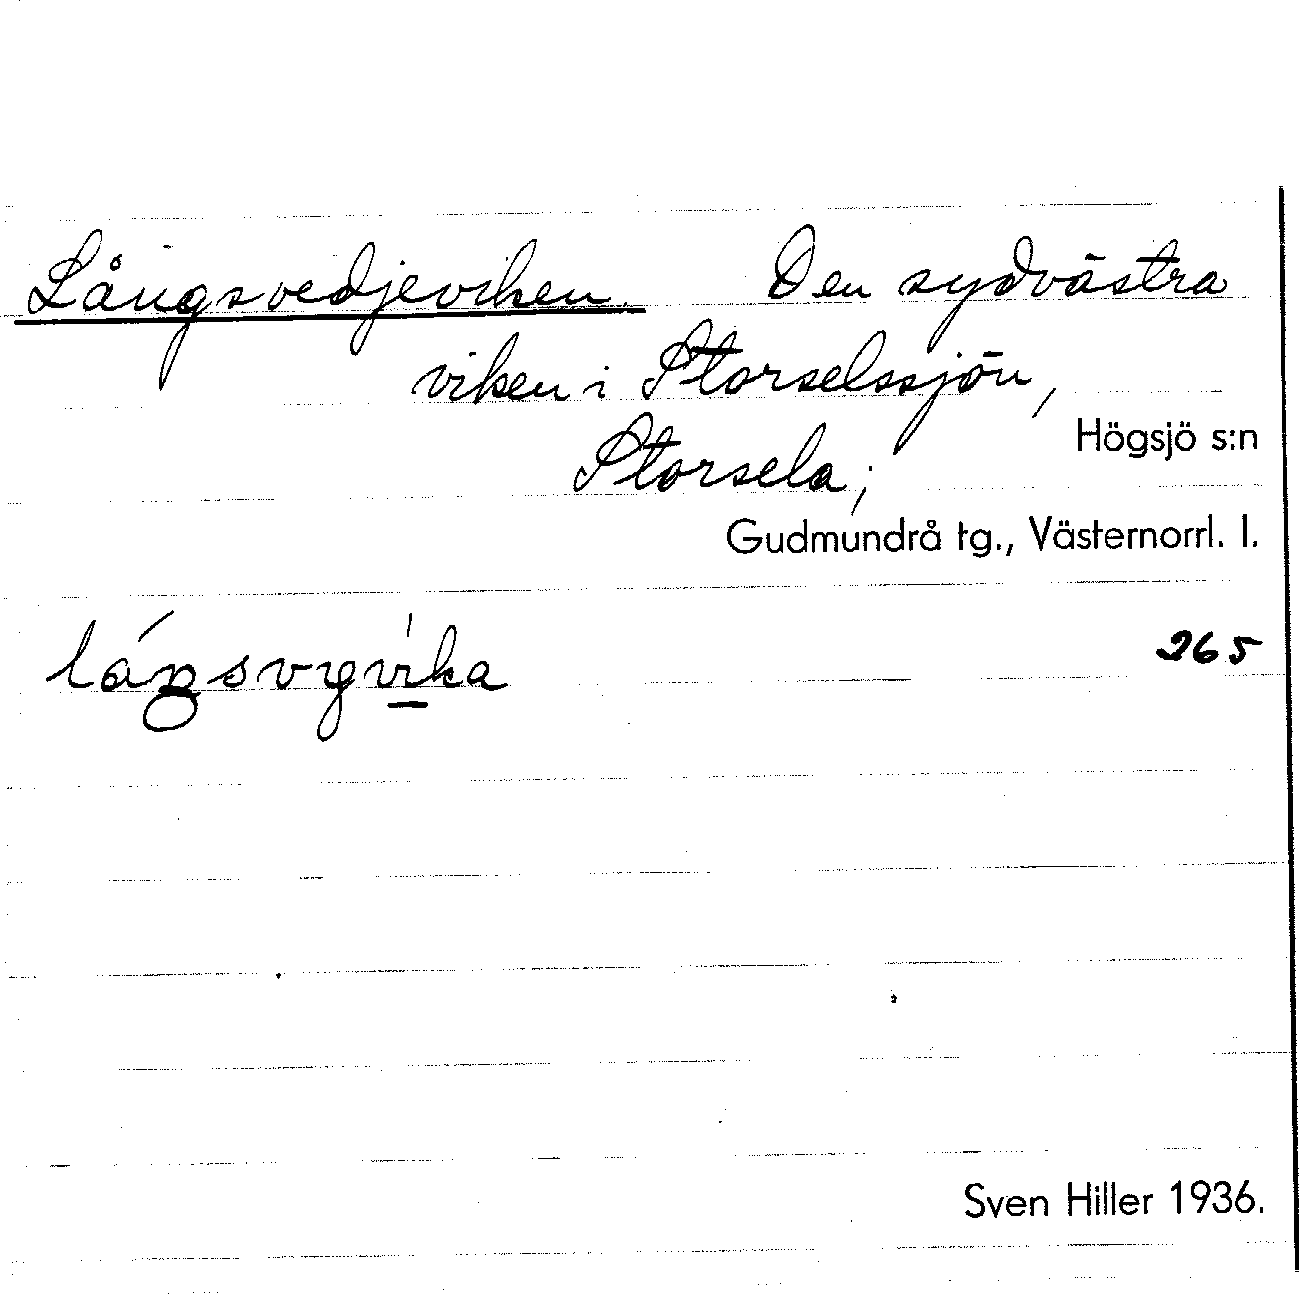 Långsvedjeviken. Den sydvästra
viken i Storselssjön,
Högsjö s:n
Storsela;
Gudmundrå tg., Västernorrl. l.
265
Sven Hiller 1936.